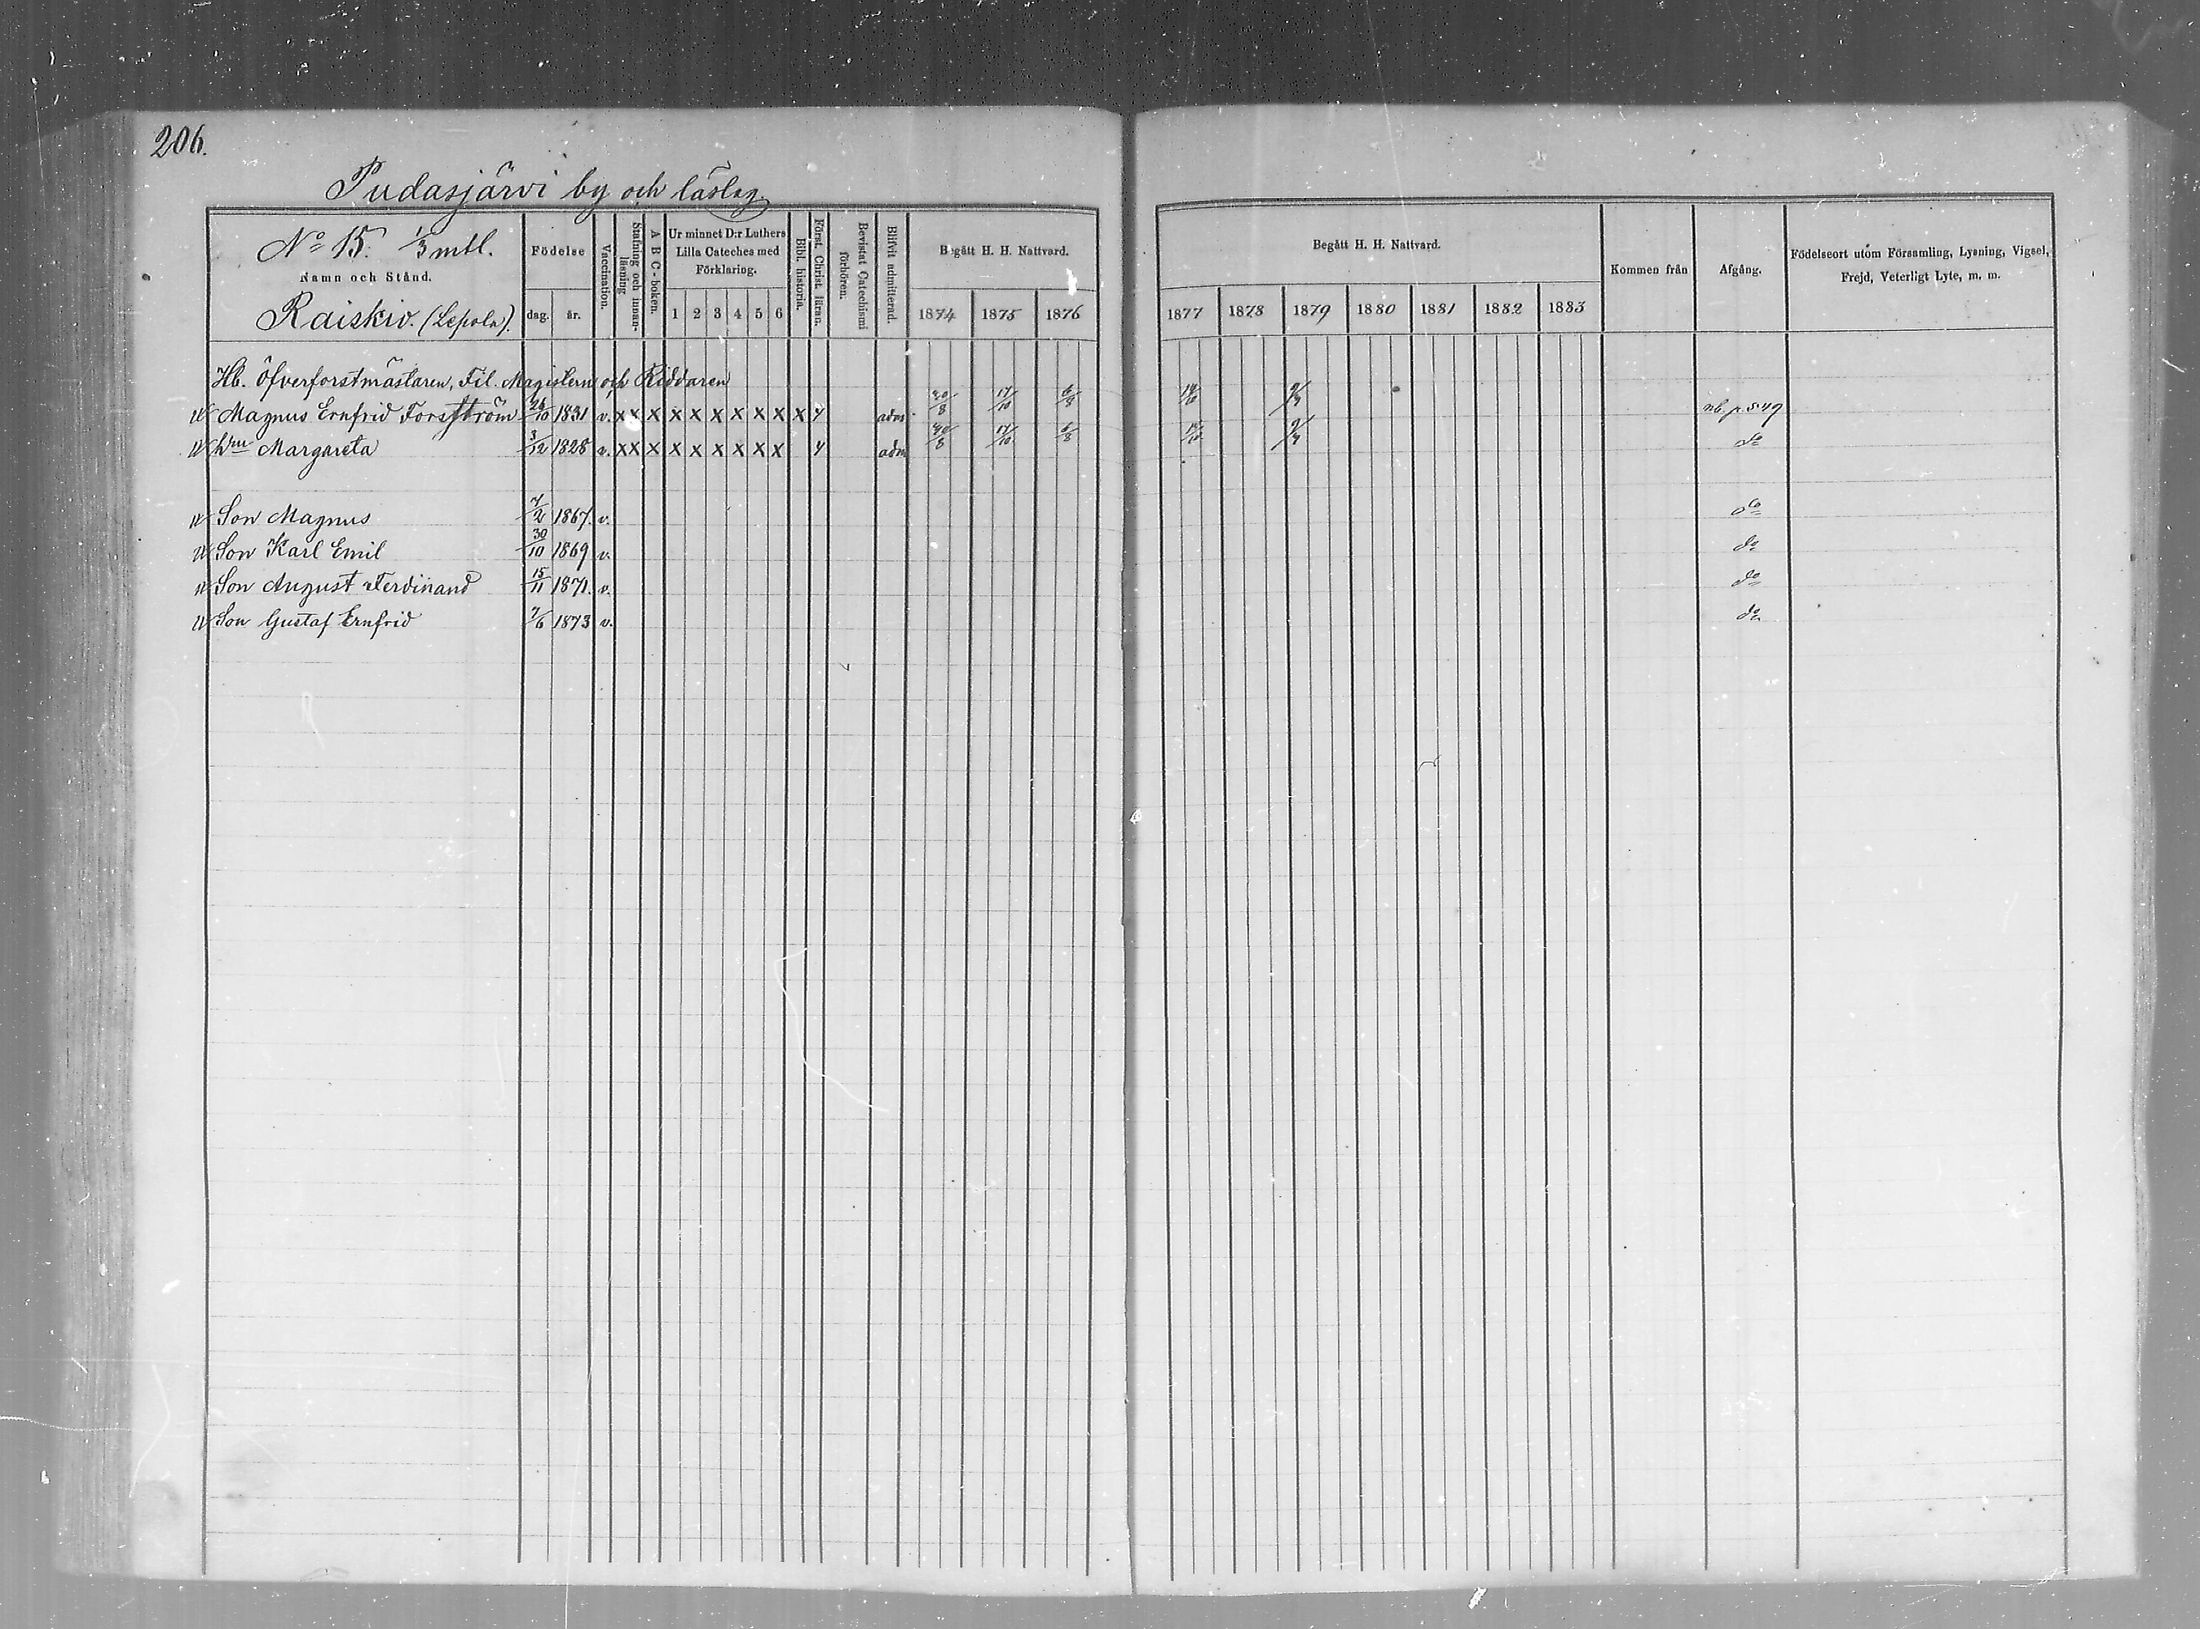 206.
Pudasjärvi by och läslag
No 15. 1/3 mtl.
Namn och Stånd.
Raiskio. (Lepola).
Födelse
dag. år.
Vaccination.
Stafning och innanläsning
A B C-boken.
Ur minnet D:r Luthers Lilla Cateches med Förklaring.
1 2 3 4 5 6
Bibl. historia.
Först. Christ. läran.
Bevistat Catechismi förhören.
Blifvit admitterad.
Begått H. H. Nattvard.
1874 1875 1876
Begått H. H. Nattvard.
1877 1878 1879 1880 1881 1882 1883
Kommen från
Afgång.
Födelseort utom Församling, Lysning, Vigsel, Frejd, Veterligt Lyte, m. m.
Hb. Öfverforstmästaren, Fil. Magistern och Riddaren
Magnus Ernfrid Forsström 26/10 1831 v. x x x x x x x x x x 4 adm. 30/8 17/10 6/8 14/10 9/3 nb. p. 549
hm Margareta 3/12 1828 v. x x x x x x x x x 4 adm 30/8 17/10 6/8 14/10 9/3 do
Son Magnus 7/2 1867. v. do
Son Karl Emil 30/10 1869 v. do
Son August Ferdinand 15/11 1871. v. do
Son Gustaf Ernfrid 7/6 1873 v. do